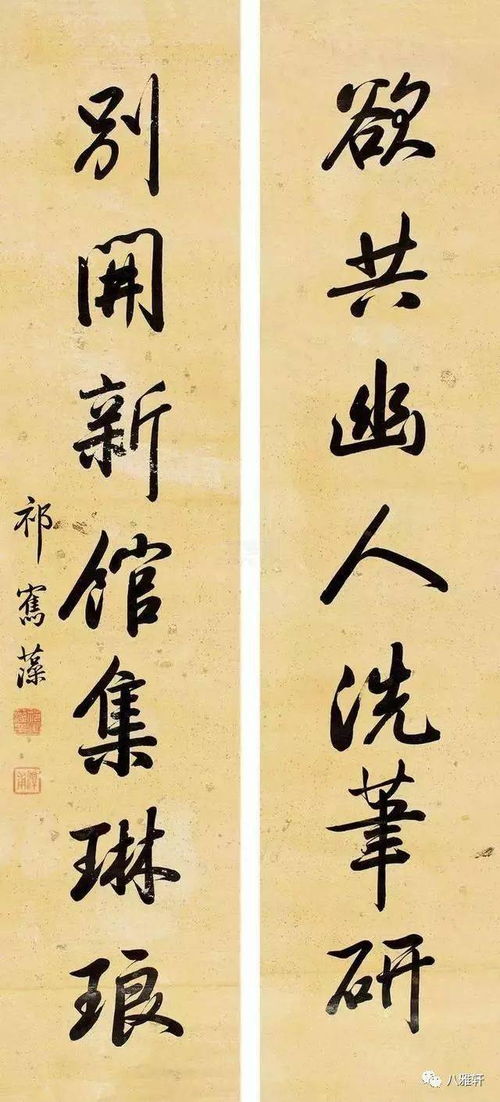 欲共幽人洗筆研
別開新館集琳琅
祁寯藻
八雅轩